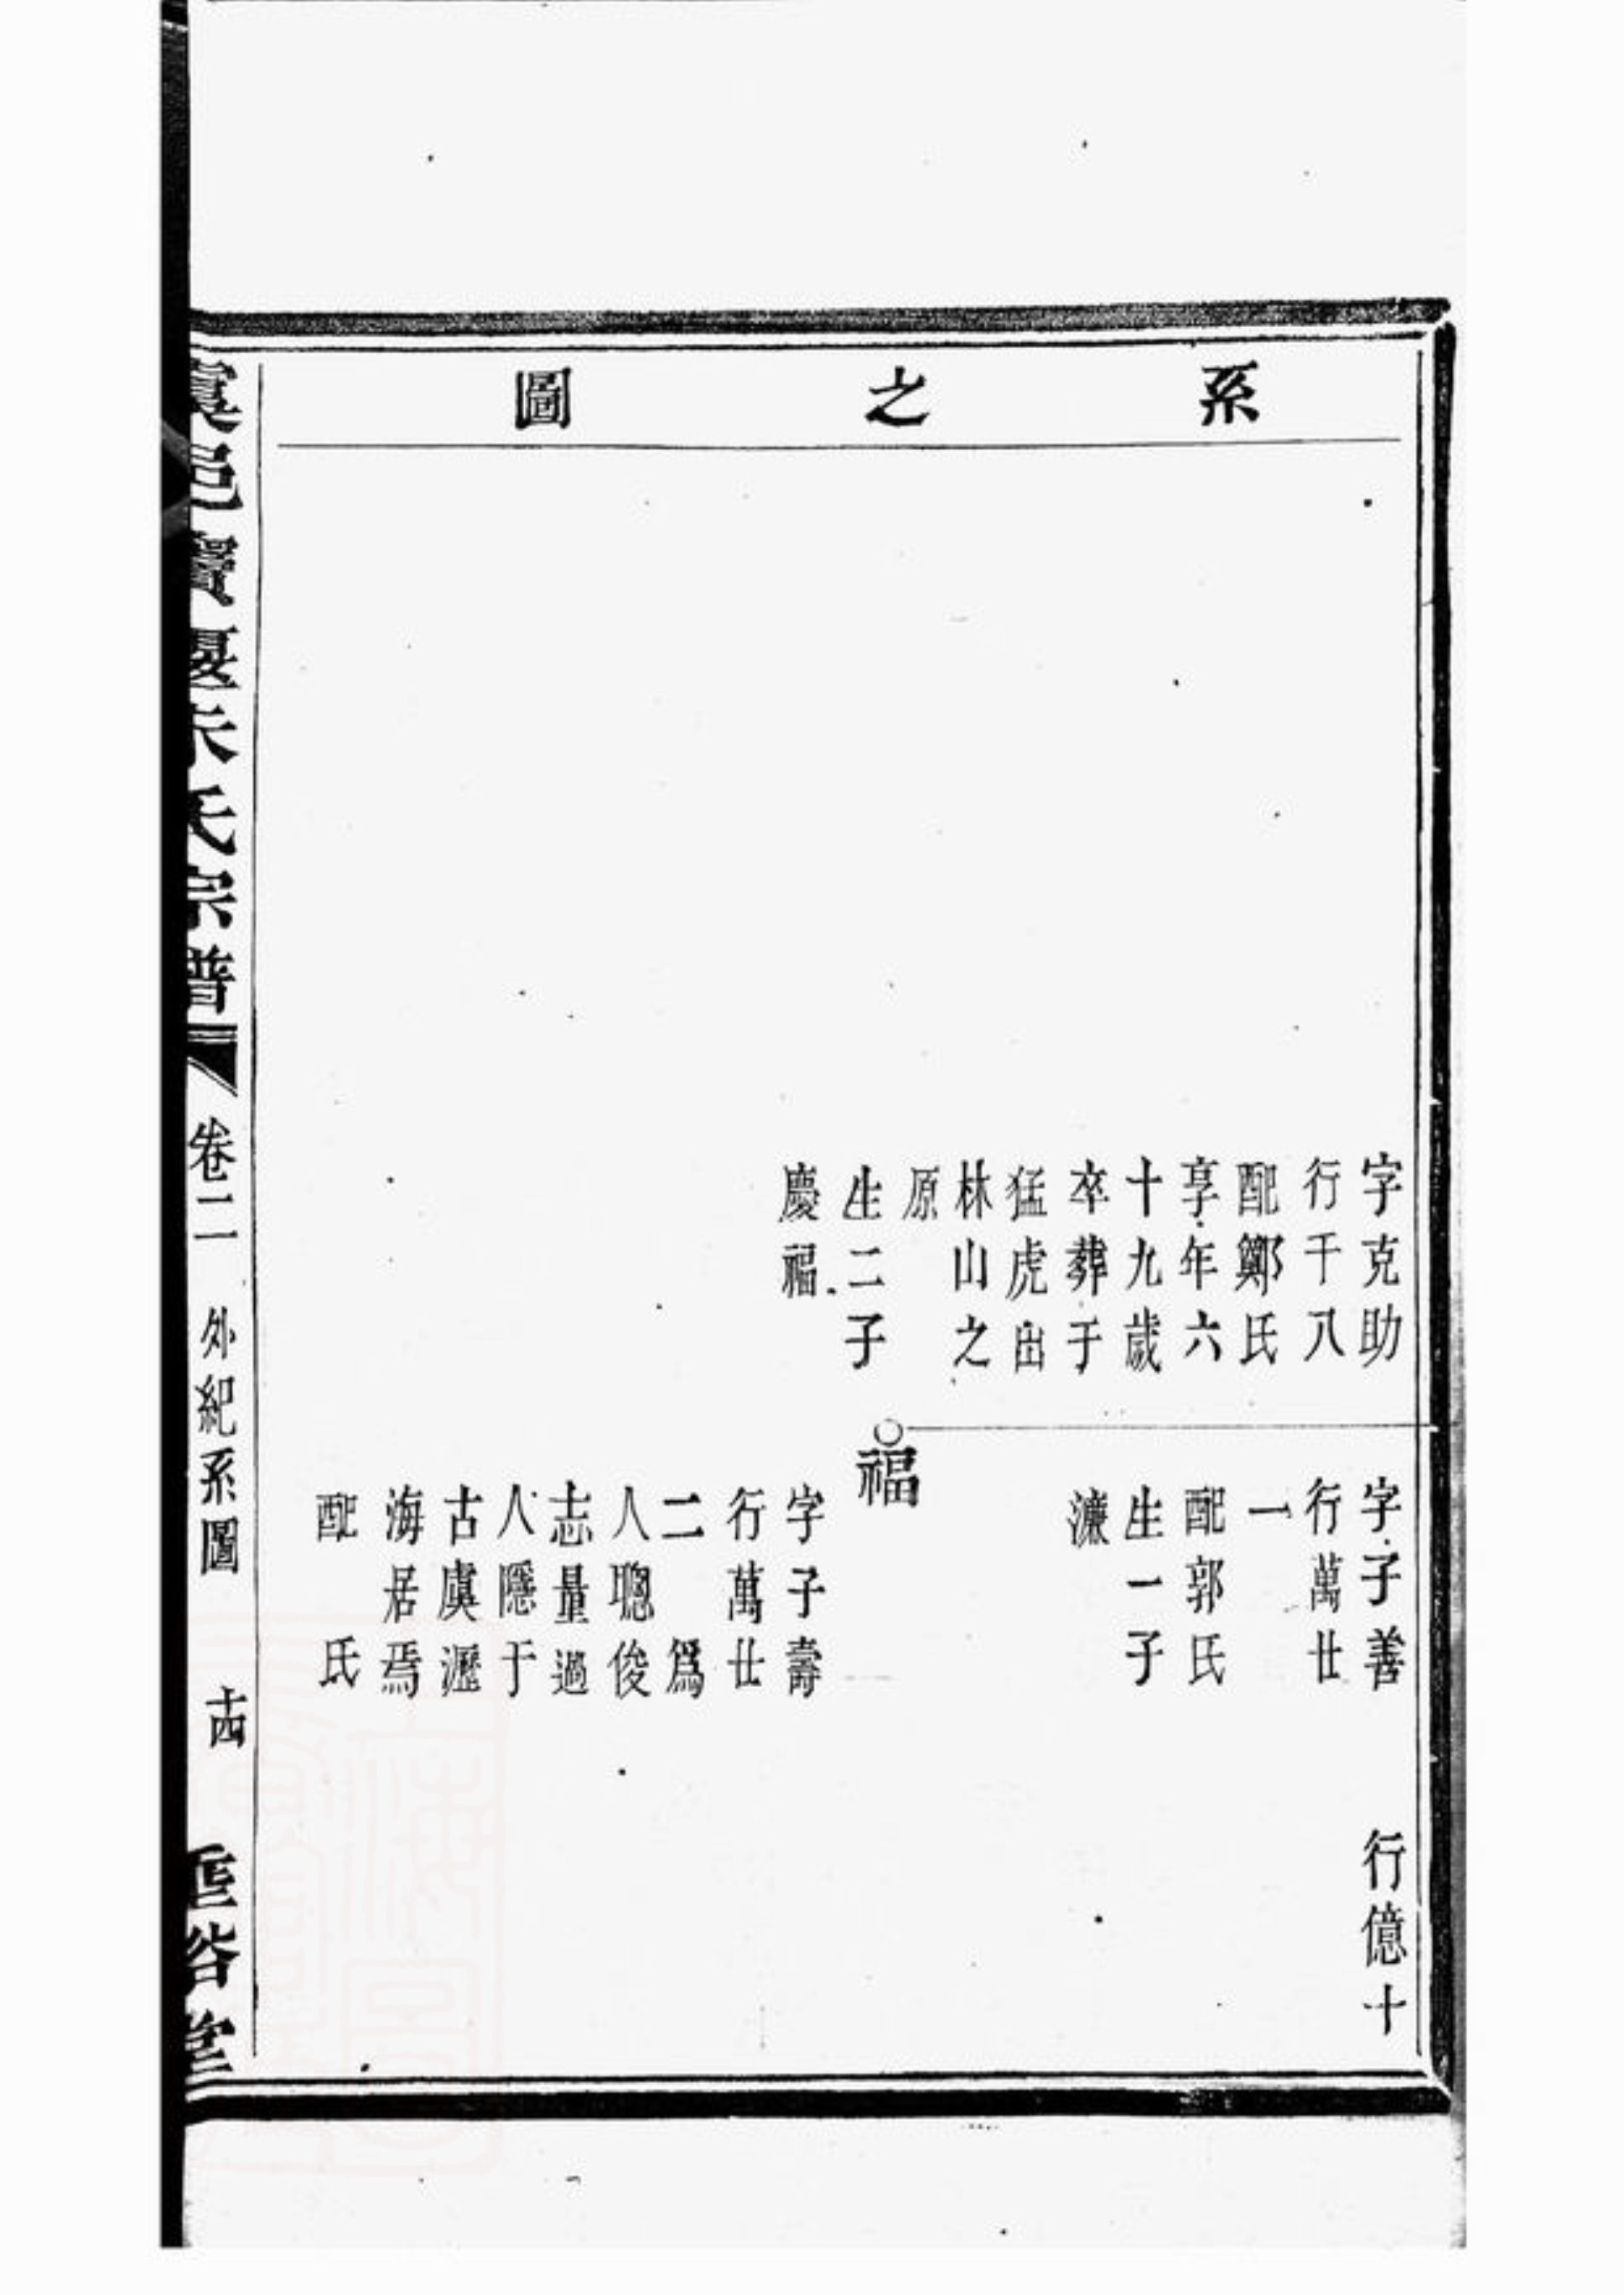 系之圖
字克助
行干八
配鄭氏
享年六
十九歲
卒葬于
猛虎出
林山之
原
生二子
慶福
字子善
行萬廿
一
配郭氏
生一子
濂
福
字子壽
行萬廿
二　爲
人聰俊
志量過
人隱于
古虞瀝
海居焉
配　氏
行億十
虞邑寶堰朱氏宗譜
卷二
外紀系圖
十四
垂裕堂